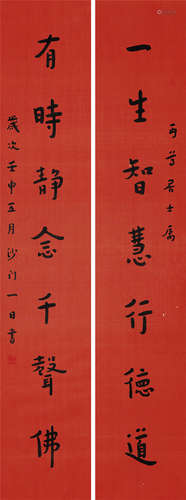 丏尊居士屬
一生智慧行德道
有時靜念千聲佛
歲次壬申五月沙門一日書